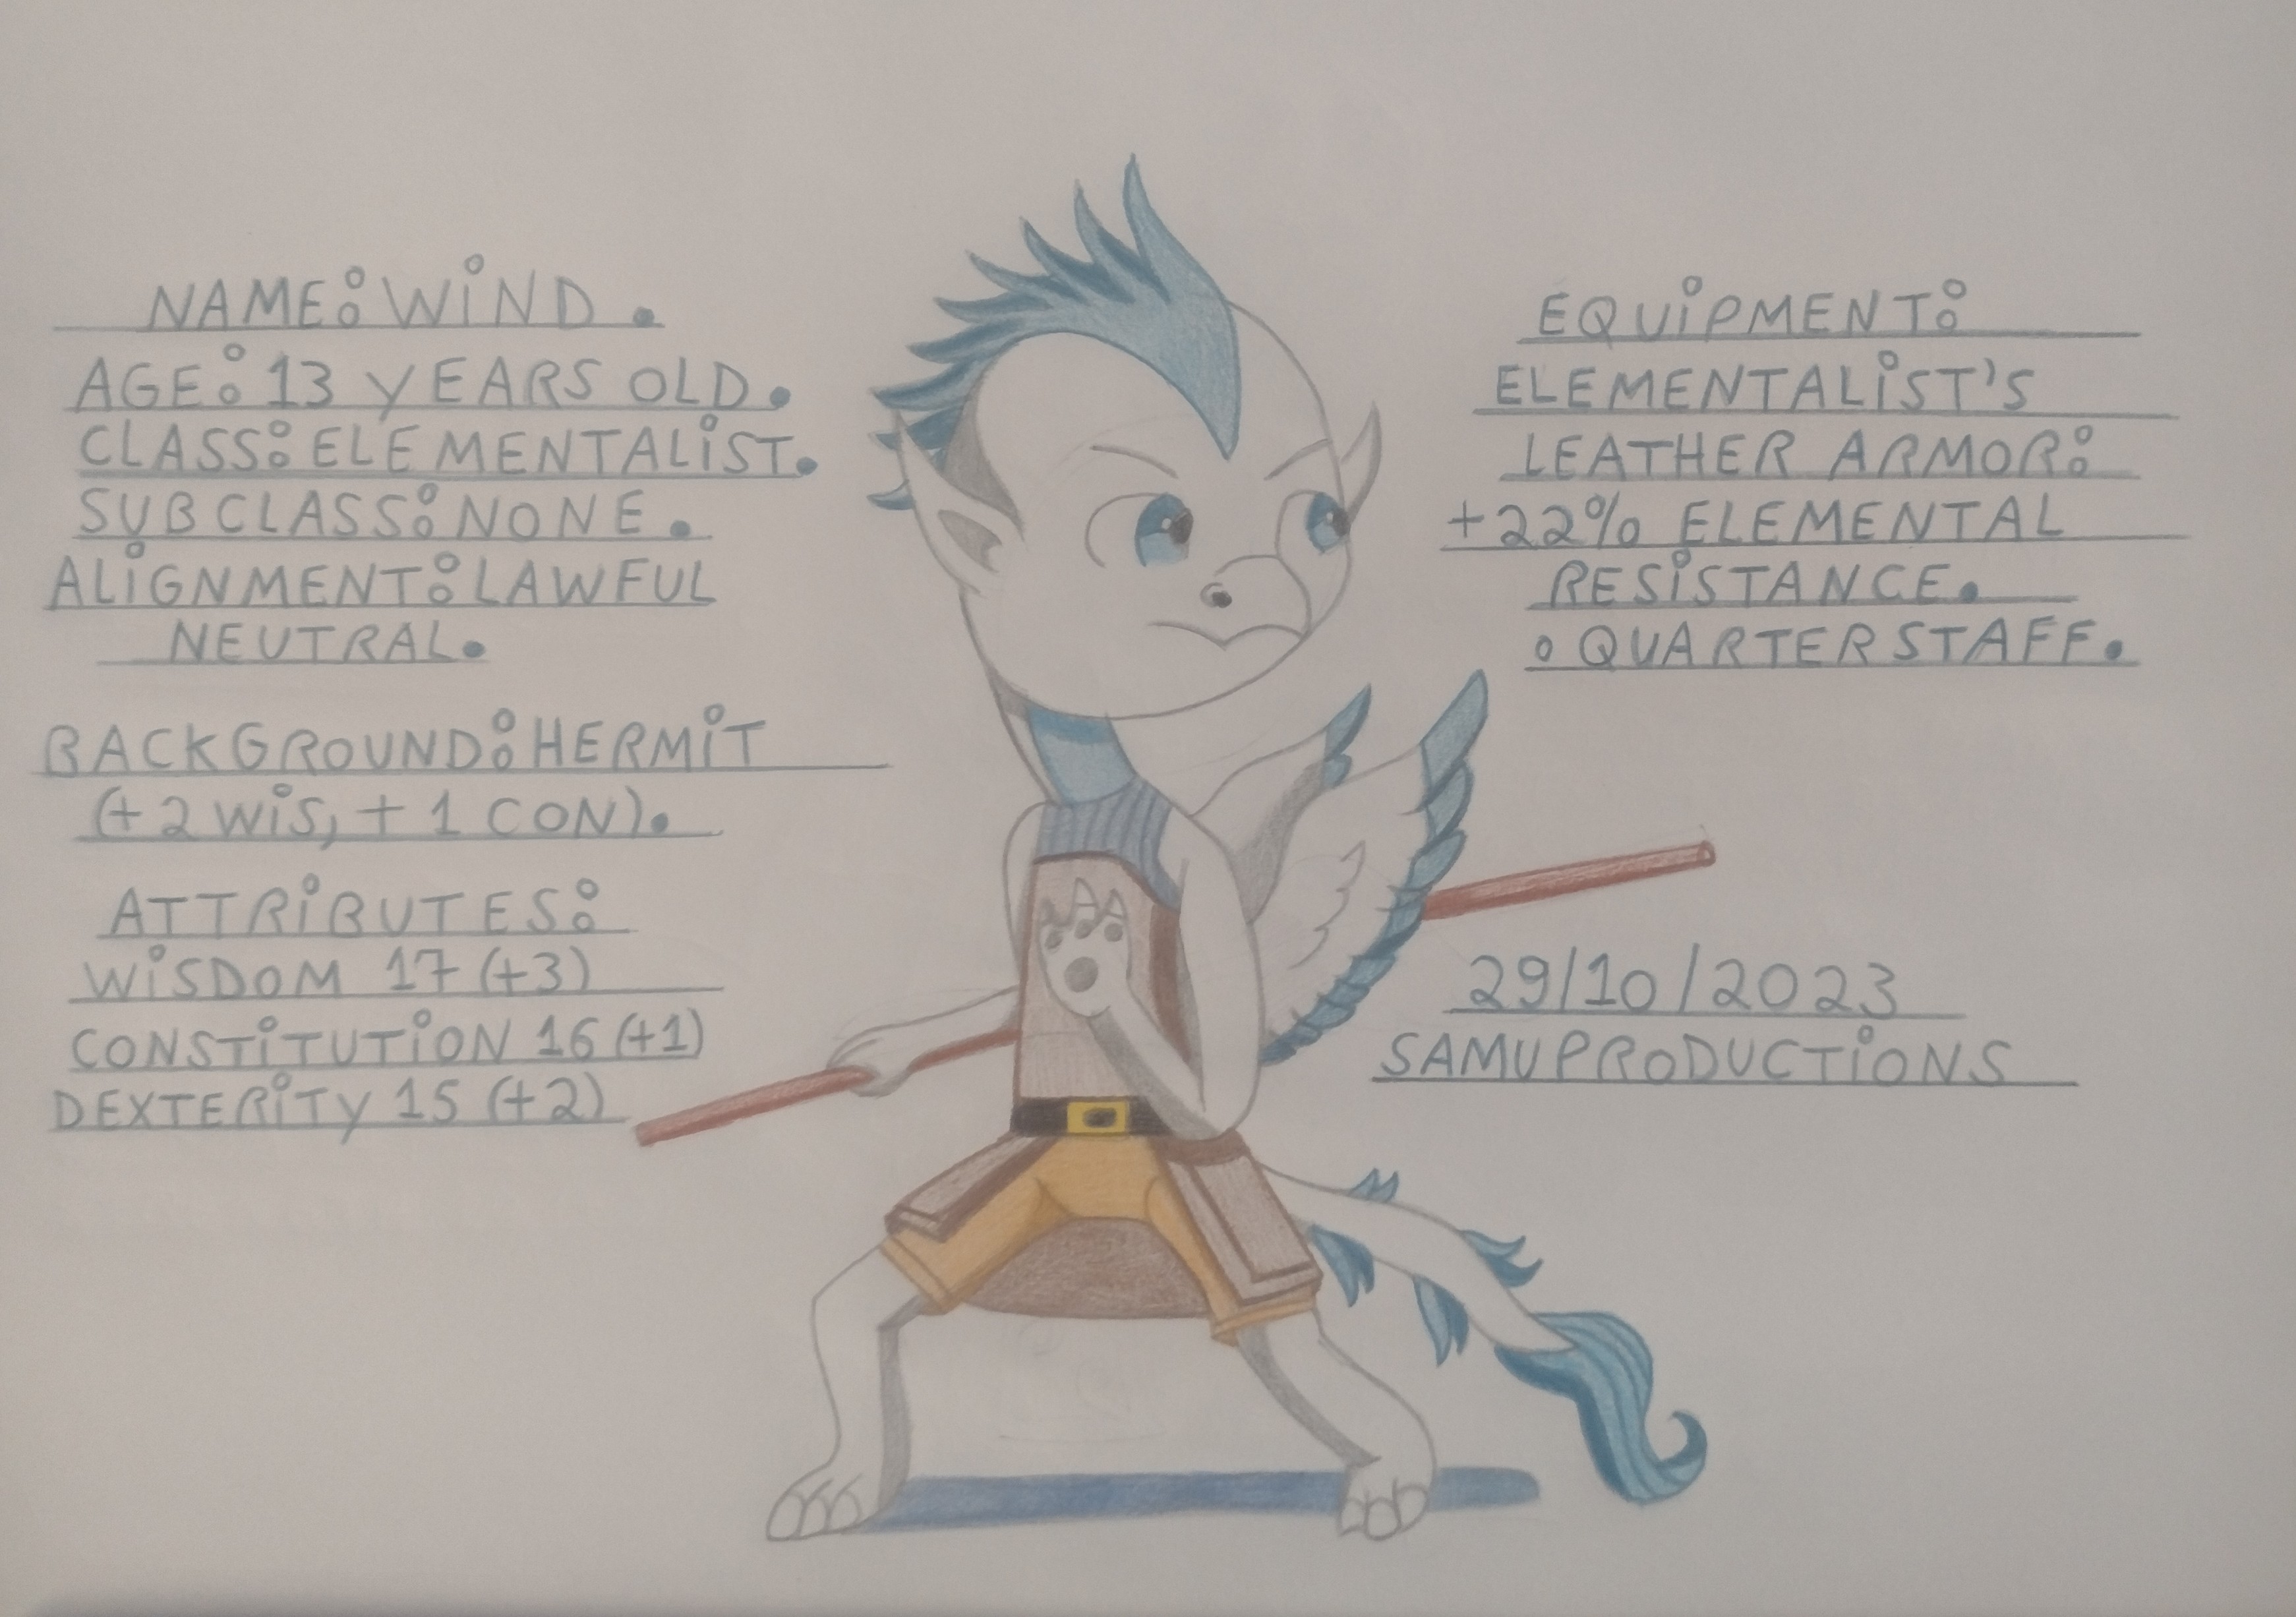 NAME: WiND.
AGE: 13 YEARS OLD.
CLASS: ELEMENTALiST.
SUBCLASS: NONE.
ALiGNMENT: LAWFUL
NEUTRAL.
BACKGROUND: HERMiT
(+2 WiS, +1 CON).
ATTRiBUTES:
WiSDOM 17 (+3)
CONSTiTUTiON 16 (+1)
DEXTERiTY 15 (+2)
EQUiPMENT:
ELEMENTALiST'S
LEATHER ARMOR:
+22% ELEMENTAL
RESiSTANCE.
° QUARTERSTAFF.
29/10/2023
SAMUPRODUCTiONS